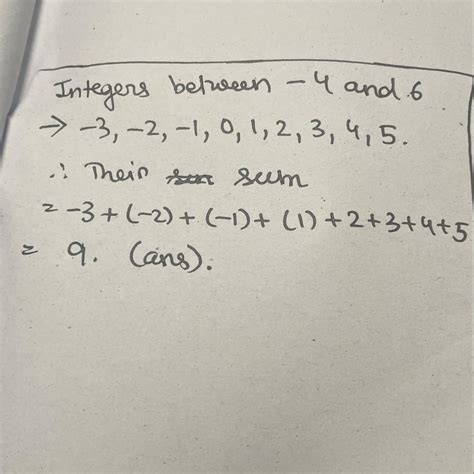 Integers between -4 and 6
→ -3, -2, -1, 0, 1, 2, 3, 4, 5.
∴ Their sum
= -3 + (-2) + (-1) + (1) + 2+3+4+5
= 9. (ans).